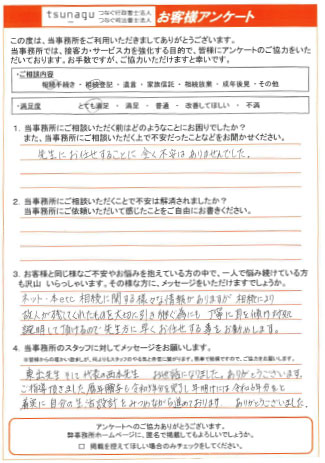 tsunagu つなぐ行政書士法人
つなぐ司法書士法人 お客様アンケート
この度は、当事務所をご利用いただきましてありがとうございます。
当事務所では、接客力・サービス力を強化する目的で、皆様にアンケートのご協力をいた
だいております。お手数ですが、ご協力いただけますと幸いです。
・ご相談内容
相続手続き・相続登記・遺言・家族信託・相続放棄・成年後見・その他
・満足度 とても満足 ・ 満足 ・ 普通 ・ 改善してほしい ・ 不満
1. 当事務所にご相談いただく前はどのようなことにお困りでしたか?
また、当事務所にご相談いただく上で不安だったことなどをお聞かせください。
先生にお任せすることに全く不安はありませんでした。
2. 当事務所にご相談いただくことで不安は解消されましたか?
当事務所にご依頼いただいて感じたことをご自由にお書きください。
3. お客様と同じ様なご不安やお悩みを抱えている方の中で、一人で悩み続けている方
も沢山 いらっしゃいます。その様な方に、メッセージをいただけますでしょうか。
ネット・本etc 相続に関する様々な情報がありますが 相続により
故人が残してくれたものを大切に引き継ぐ為にも 丁寧に耳を傾け
説明して頂けるので先生方に早くお任せする事をお勧めします。
4. 当事務所のスタッフに対してメッセージをお願いします。
先生 そして代表の西本先生 お世話になりました。ありがとうございます。
ご指導頂きました
着実に自分の生活設計をみつめながら進めております ありがとうございました。
アンケートへのご協力ありがとうございます。
弊事務所ホームページに、匿名で掲載してもよろしいでしょうか。
□ 掲載を控えてほしい場合のみチェックをしてください。